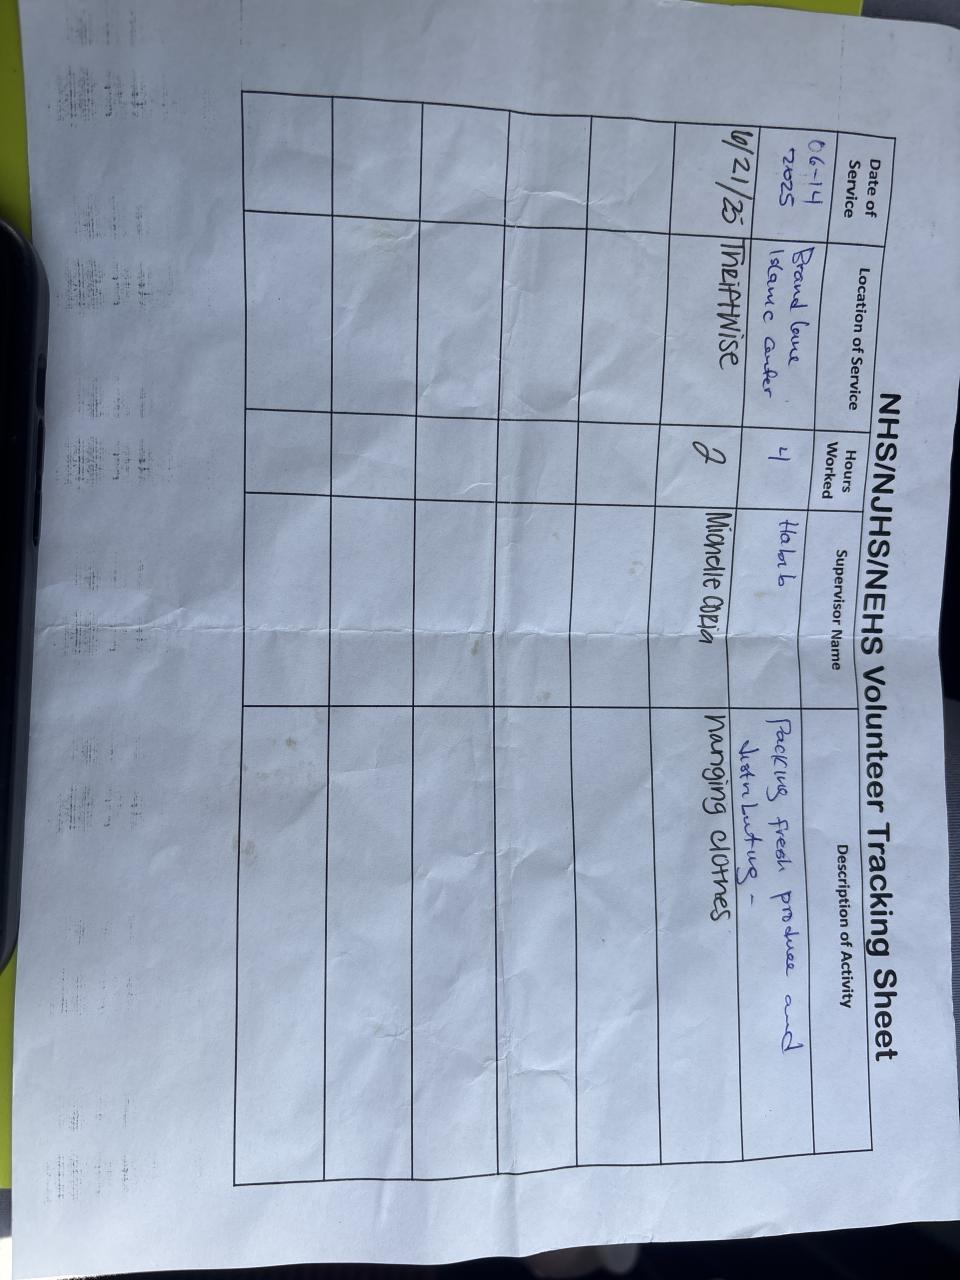 NHS/NJHS/NEHS Volunteer Tracking Sheet
Date of Service
Location of Service
Hours Worked
Supervisor Name
Description of Activity
06-14 2025
Brand Lane Islamic Center
4
Habib
Packing fresh produce and distributing -
6/21/25
ThriftWise
2
Michelle Coria
hanging clothes